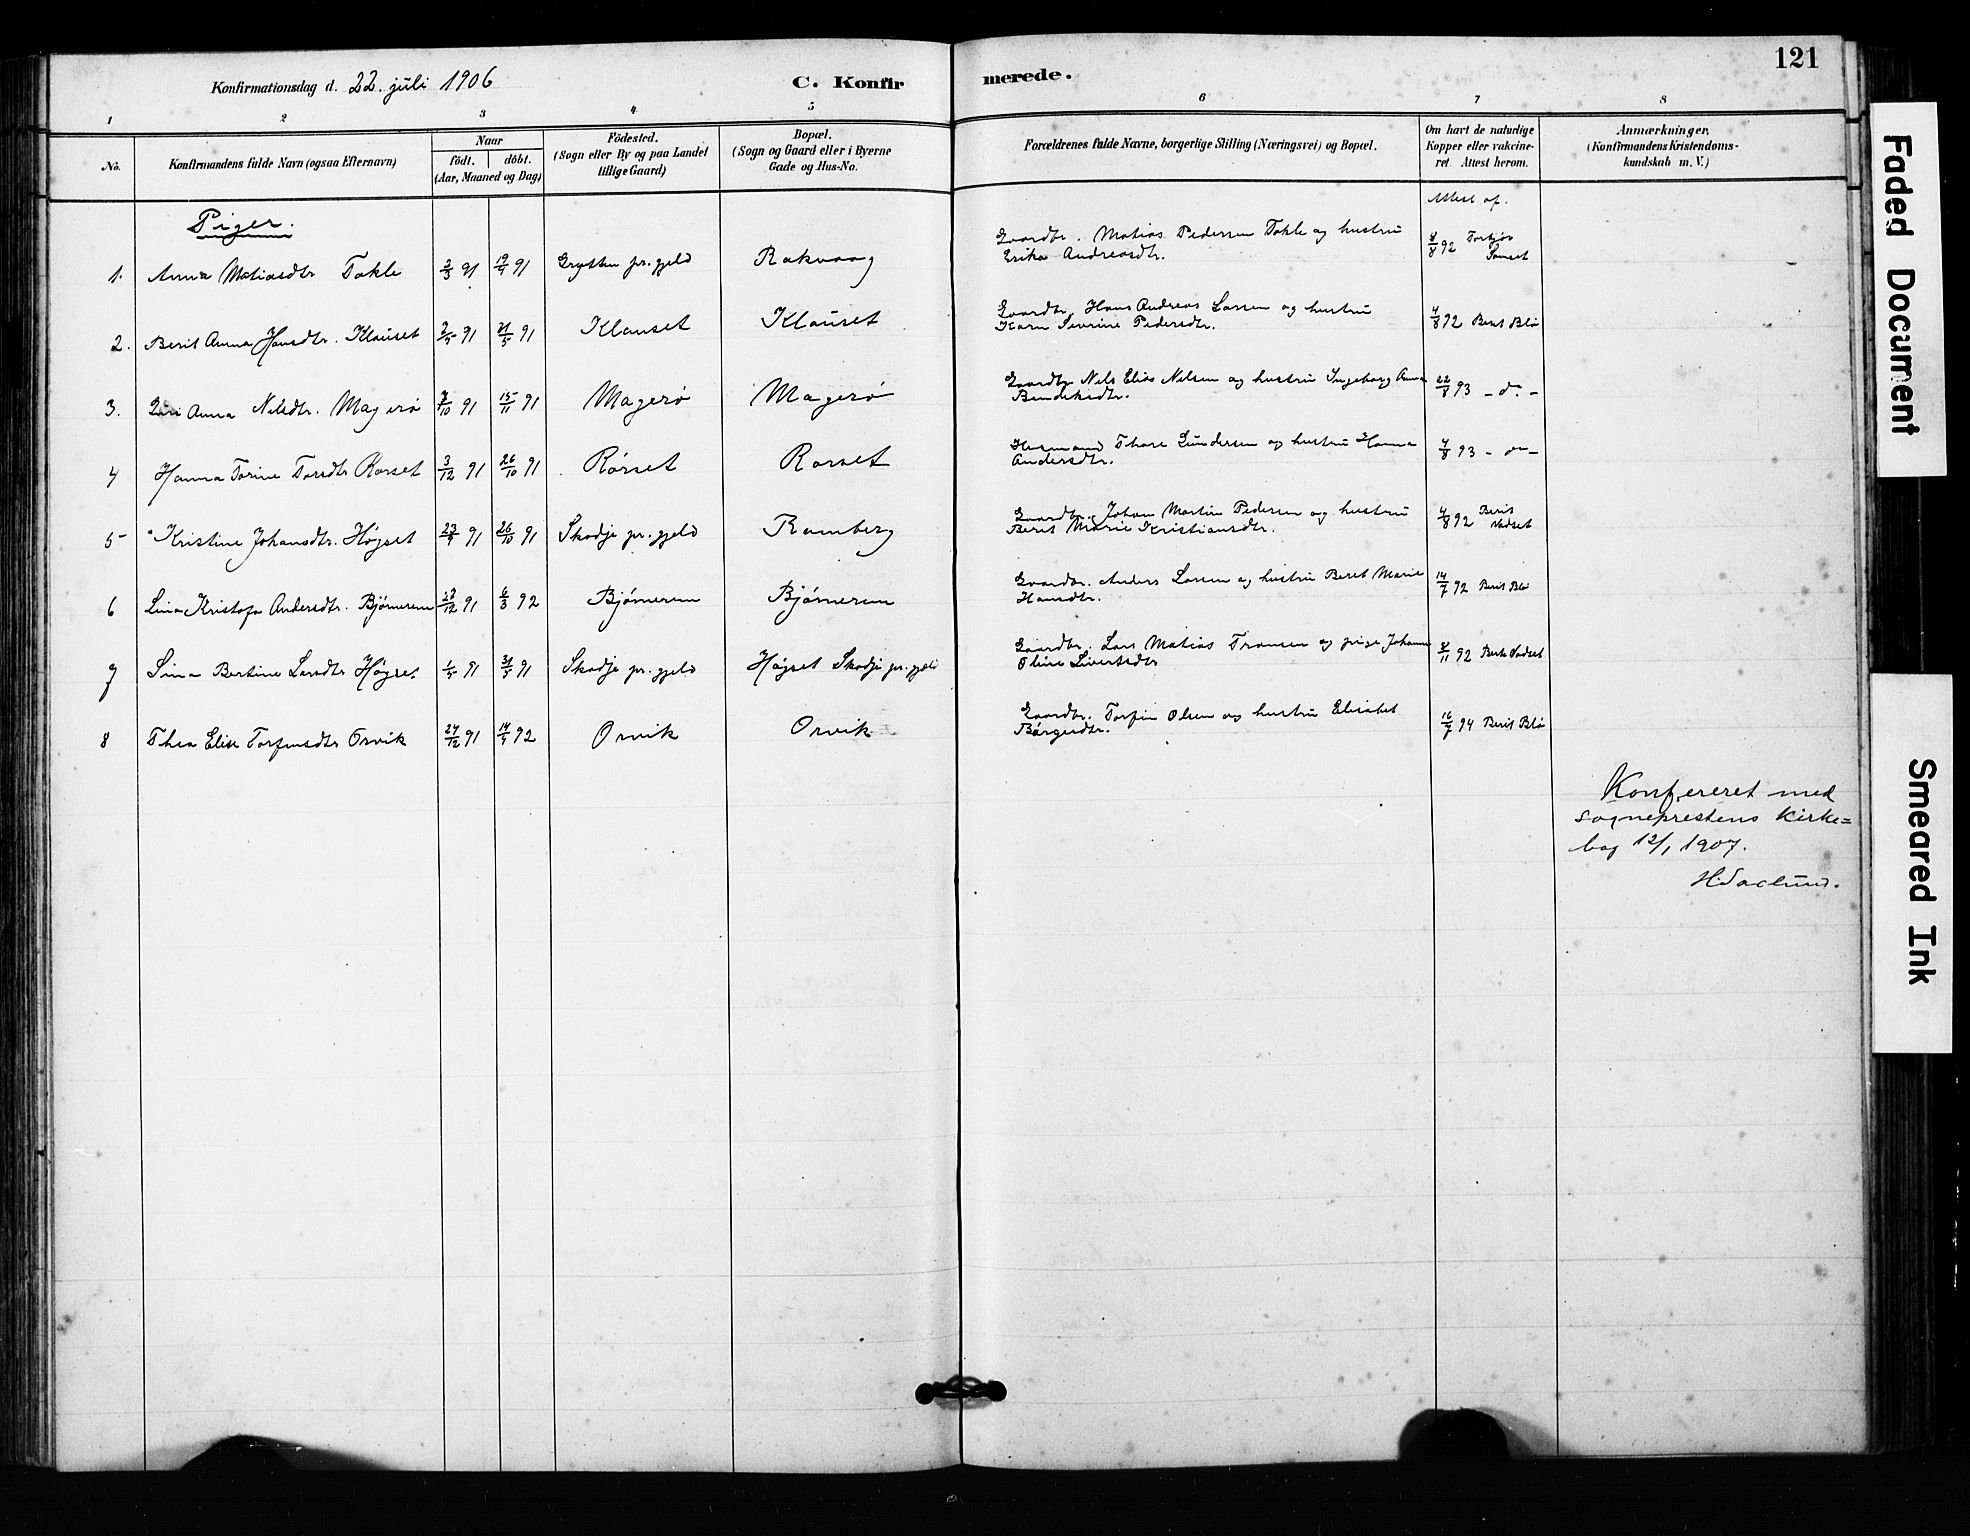 121
Konfirmationsdag d. 22. juli 1906
C. Konfirmerede.
1 2 3 4 5 6 7 8
No.
Konfirmandens fulde Navn (ogsaa Efternavn)
Naar
födt. döbt.
(Aar, Maaned og Dag)
Födested.
(Sogn eller By og paa Landet
tillige Gaard)
Bopæl.
(Sogn og Gaard eller i Byerne
Gade og Hus-No.
Forældrenes fulde Navne, borgerlige Stilling (Næringsvei) og Bopæl.
Om havt de naturlige
Kopper eller vakcine-
ret. Attest herom.
Anmærkninger,
(Konfirmandens Kristendoms-
kundskab m. V.)
Attest af.
Piger.
1. Anna Matiasdtr Takle 2/3 91 19/4 91 Grytten pr.gjeld Rakvaag Gaardbr. Matias Pedersen Takle og hustru
Erika Andreasdtr. 8/8 92
2. Berit Anna Hansdtr. Klauset 2/5 91 21/5 91 Klauset Klauset Gaardbr. Hans Andreas Larsen og hustru
Karn Sevrine Pedersdtr. 4/8 92 Berit Blø
3. Anna Nilsdtr. Magerø /10 91 15/11 91 Magerø Magerø Gaardbr. Nils Elias Nilsen og hustru Ingeborg Anna
22/8 93 - do. -
4 Hanna Torine Rørset 3/12 91 26/10 91 Rørset Rørset Husmand og hustru Hanna
Andersdtr. 4/8 93
5 Kristine Johansdtr. Høgset 23/9 91 26/10 91 Skodje pr.gjeld Ramberg Gaardbr. Johan Martin Pedersen og hustru
Berit Marie Kristiansdtr. 4/8 92 Berit
Vadset
6 Lina Kristofa Andersdtr. Bjørnerem 28/12 91 6/3 92 Bjørnerem Bjørnerem Gaardbr. Anders Larsen og hustru Beret Marie
Hansdtr. 14/7 92 Berit Blø
7 Sina Bertine Larsdtr Høgset 1/5 91 31/5 91 Skodje pr.gjeld Høgset Skodje pr.gjeld Gaardbr. Lars Matias Transen og pige Johanne
Oline Sivertsdtr 8/11 92 Berit Vadset
8 Thea Elise Torfinsdtr Orvik 27/12 91 14/4 92 Orvik Orvik Gaardbr. Torfin Olsen og hustru Elisabet
Børgerdtr. 16/7 94 Berit Blø
Konfereret med
sogneprestens kirke=
bog 12/1 1907.
Faded Document
Smeared Ink